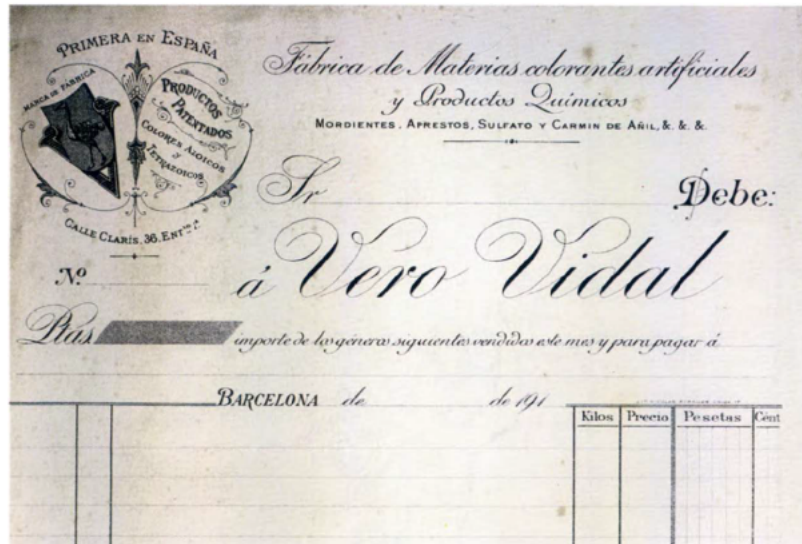 PRIMERA EN ESPAÑA
MARCA DE FÁBRICA
PRODUCTOS
PATENTADOS
COLORES AZOICOS
Y
TETRAZOICOS
CALLE CLARÍS, 36, ENTº
Fábrica de Materias colorantes artificiales
y Productos Químicos
MORDIENTES, APRESTOS, SULFATO Y CARMIN DE AÑIL, &. &. &.
Sr Debe:
Nº á Vero Vidal
Ptas importe de los géneros siguientes vendidos este mes y para pagar á
BARCELONA de de 191
Kilos Precio Pesetas Cént